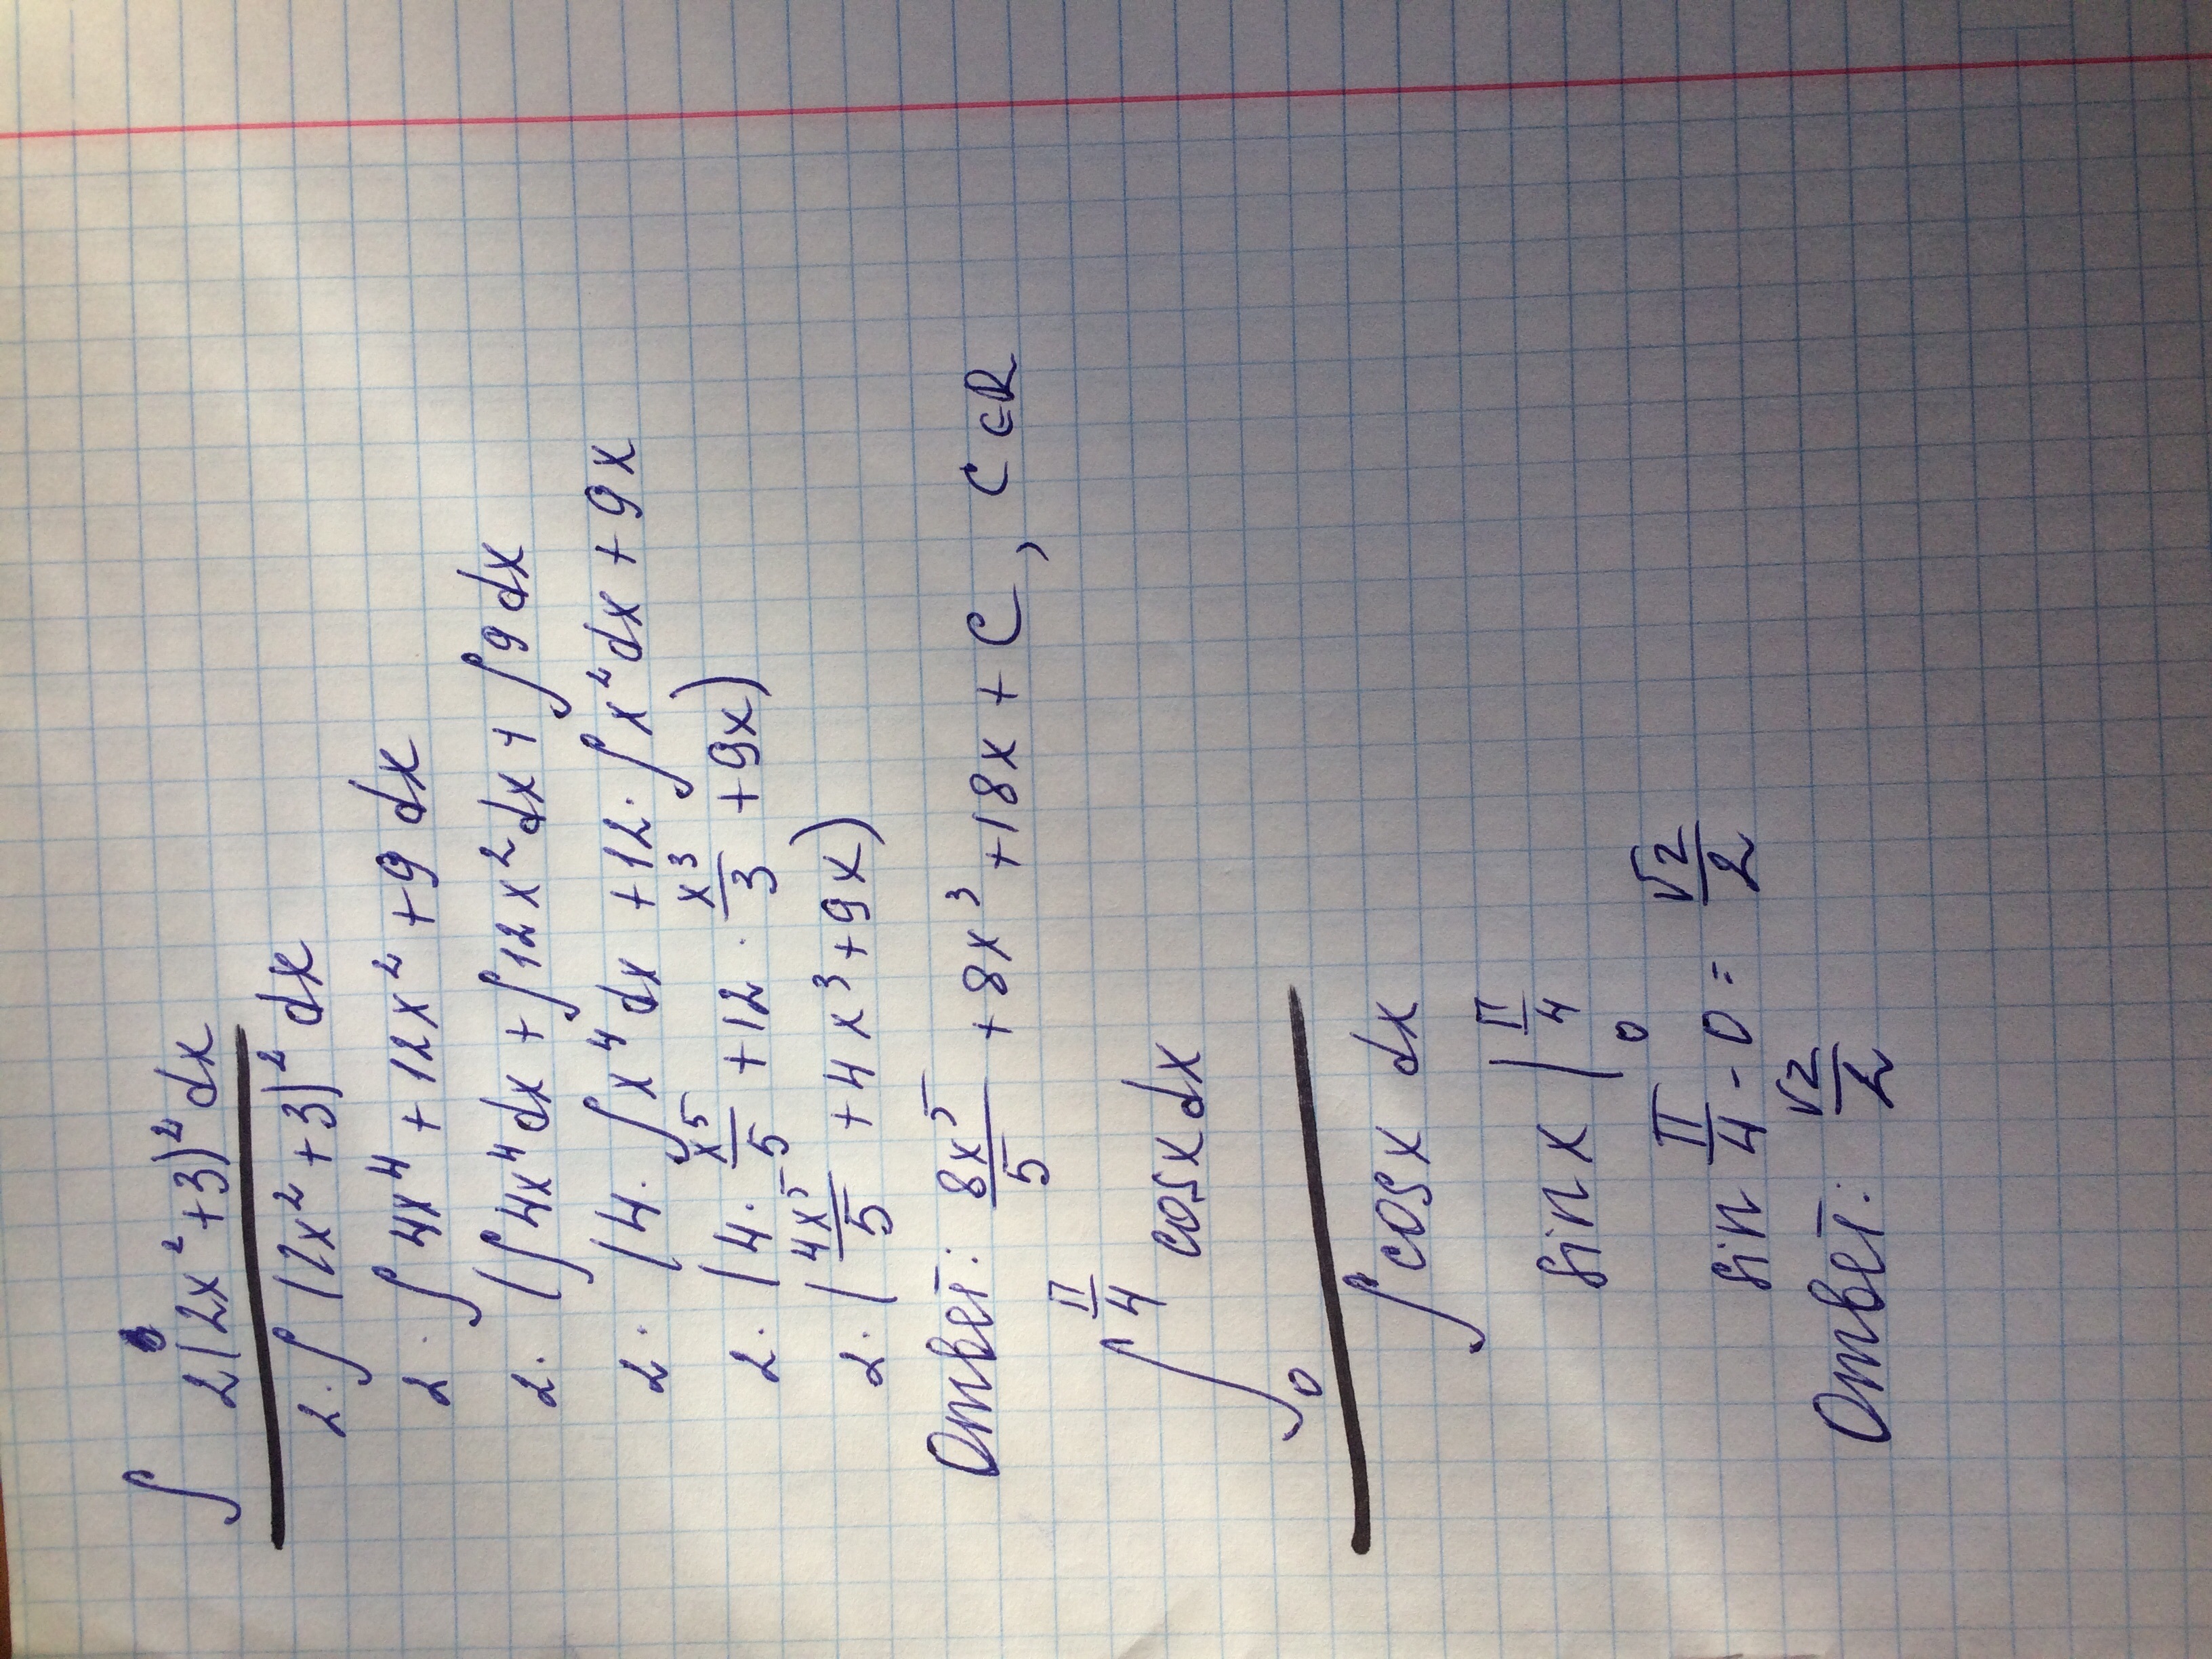 ∫ 2(2x²+3)² dx
2·∫(2x²+3)² dx
2·∫4x⁴+12x²+9 dx
2·(∫4x⁴dx+∫12x²dx+∫9dx
2·(4·∫x⁴dx+12·∫x²dx+9x
2·(4·x⁵/5+12·x³/3+9x)
2·(4x⁵/5+4x³+9x)
Ответ: 8x⁵/5+8x³+18x+C, C∈R
∫₀^π/4 cosx dx
∫cosx dx
sinx|₀^π/4
sin π/4-0=√2/2
Ответ: √2/2